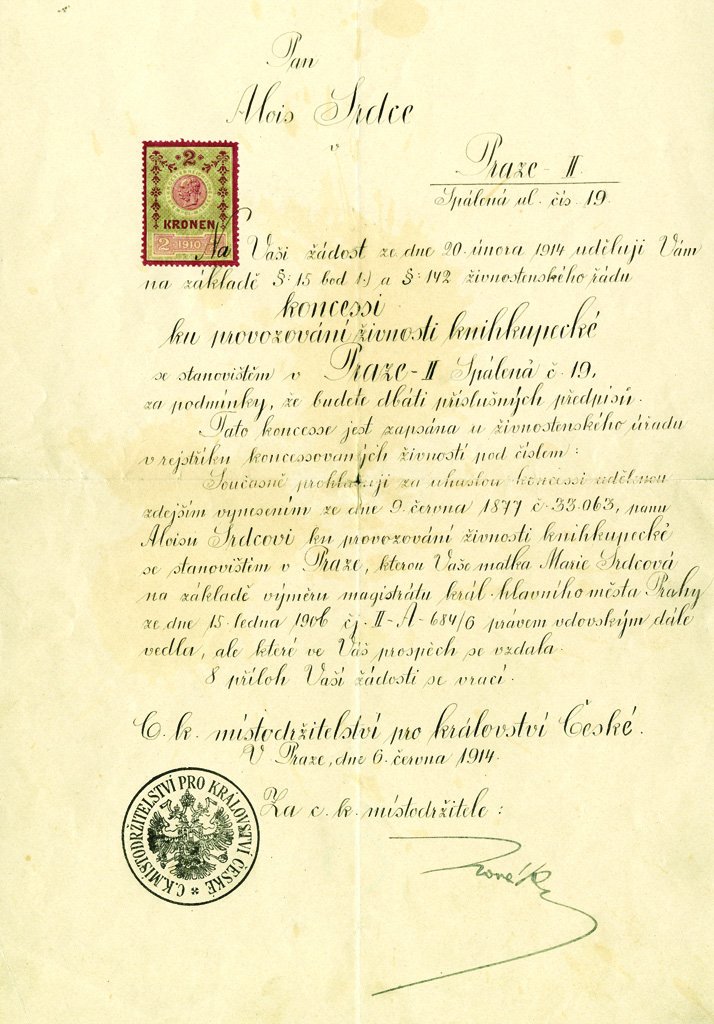 Pan
Alois Srdce
v
Praze - II
Spálená ul. čís. 19.
2
KRONEN
2 1910
Na Vaši žádost ze dne 20. února 1914 uděluji Vám
na základě §: 15 bod 1.) a §: 142 živnostenského řádu
koncessi
ku provozování živnosti knihkupecké
se stanovištěm v Praze - II Spálená č. 19,
za podmínky, že budete dbáti příslušných předpisů.
Tato koncesse jest zapsána u živnostenského úřadu
v rejstříku koncessovaných živností pod číslem:
Současně prohlašuji za uhaslou koncessi udělenou
zdejším vynesením ze dne 9. června 1877 č. 33.063, panu
Aloisu Srdcovi ku provozování živnosti knihkupecké
se stanovištěm v Praze, kterou Vaše matka Marie Srdcová
na základě výměru magistrátu král. hlavního města Prahy
ze dne 15. ledna 1906 čj. II - A - 684/6 právem vdovským dále
vedla, ale které ve Váš prospěch se vzdala.
8 příloh Vaší žádosti se vrací.
C. k. místodržitelství pro království České.
V Praze, dne 6. června 1914.
Za c. k. místodržitele:
C.K. MÍSTODRŽITELSTVÍ PRO KRÁLOVSTVÍ ČESKÉ